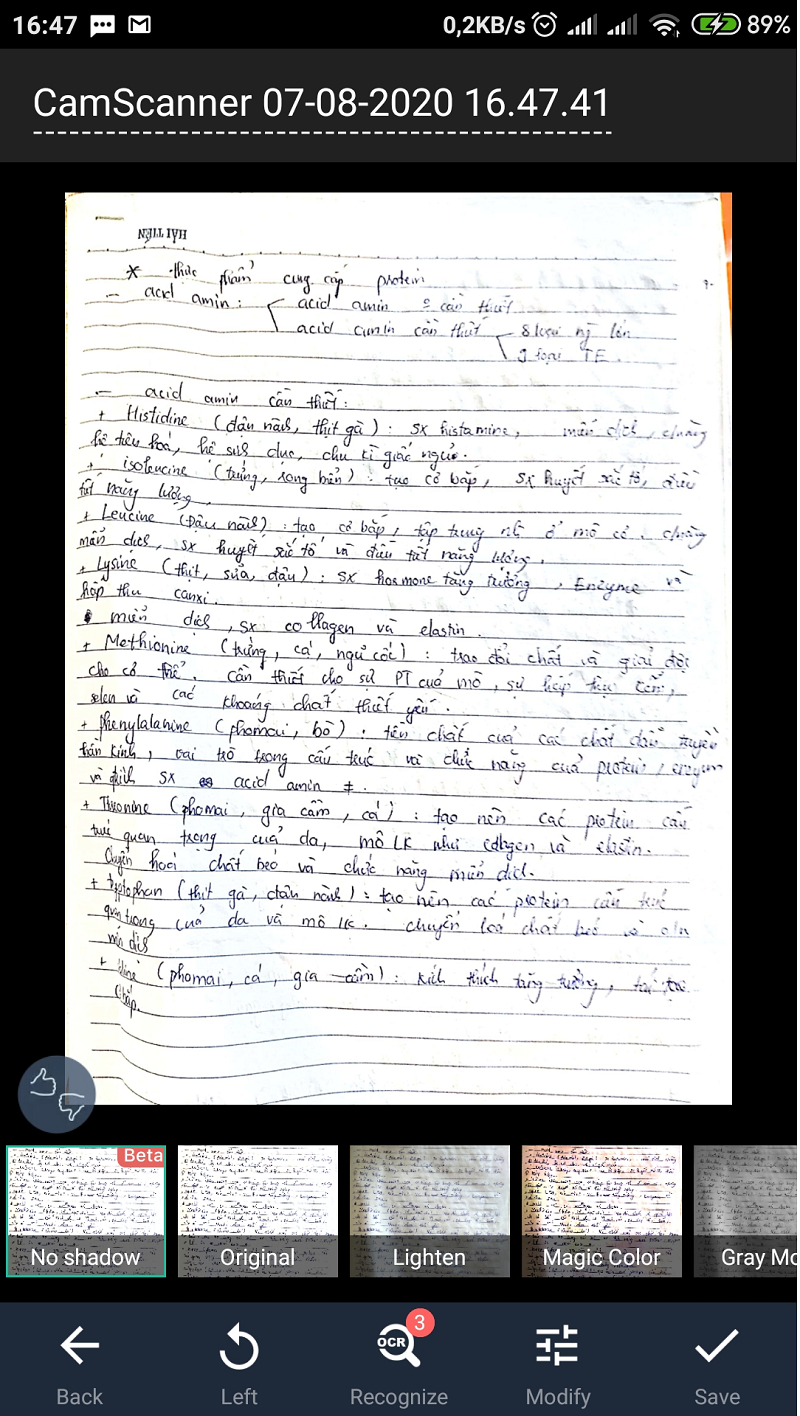 16:47
0,2KB/s
89%
CamScanner 07-08-2020 16.47.41
HẢI TIẾN
* thức phẩm cung cấp protein
- acid amin: acid amin o cần thiết
acid amin cần thiết 8 loại ng lớn
9 loại TE.
- acid amin cần thiết:
+ Histidine (đậu nành, thịt gà): sx histamine, miễn dịch, chương
hệ tiêu hoá, hệ sinh dục, chu kì giấc ngủ.
+ isoleucine (trứng, rong biển): tạo cơ bắp, sx huyết sắc tố, điều
tiết năng lượng.
+ Leucine (Đậu nành): tạo cơ bắp, tập trung ở mô cơ,
miễn dịch, sx huyết sắc tố và điều tiết năng lượng.
+ Lysine (thịt, sữa, đậu): sx hormone tăng trưởng, Enzyme và
hấp thu canxi.
miễn dịch, sx collagen và elastin.
+ Methionine (trứng, cá, ngũ cốc): trao đổi chất và giải độc
cho cơ thể. cần thiết cho sự PT của mô, sự hấp thụ kẽm,
selen và các khoáng chất thiết yếu.
+ Phenylalanine (phomai, bò): tiền chất của các chất dẫn truyền
thần kinh, vai trò trong cấu trúc và chức năng của protein, enzym
và sx acid amin ≠.
+ Threonine (phomai, gia cầm, cá): tạo nên các protein cấu
trúc quan trọng của da, mô LK như collagen và elastin.
chuyển hoá chất béo và chức năng miễn dịch.
+ tryptophan (thịt gà, đậu nành): tạo nên các protein cấu trúc
quan trọng của da và mô LK. chuyển hoá chất béo và
miễn dịch
+ (phomai, cá, gia cầm): kích thích tăng trưởng, tái tạo
Beta
No shadow
Original
Lighten
Magic Color
Gray Mo
OCR
3
Back
Left
Recognize
Modify
Save